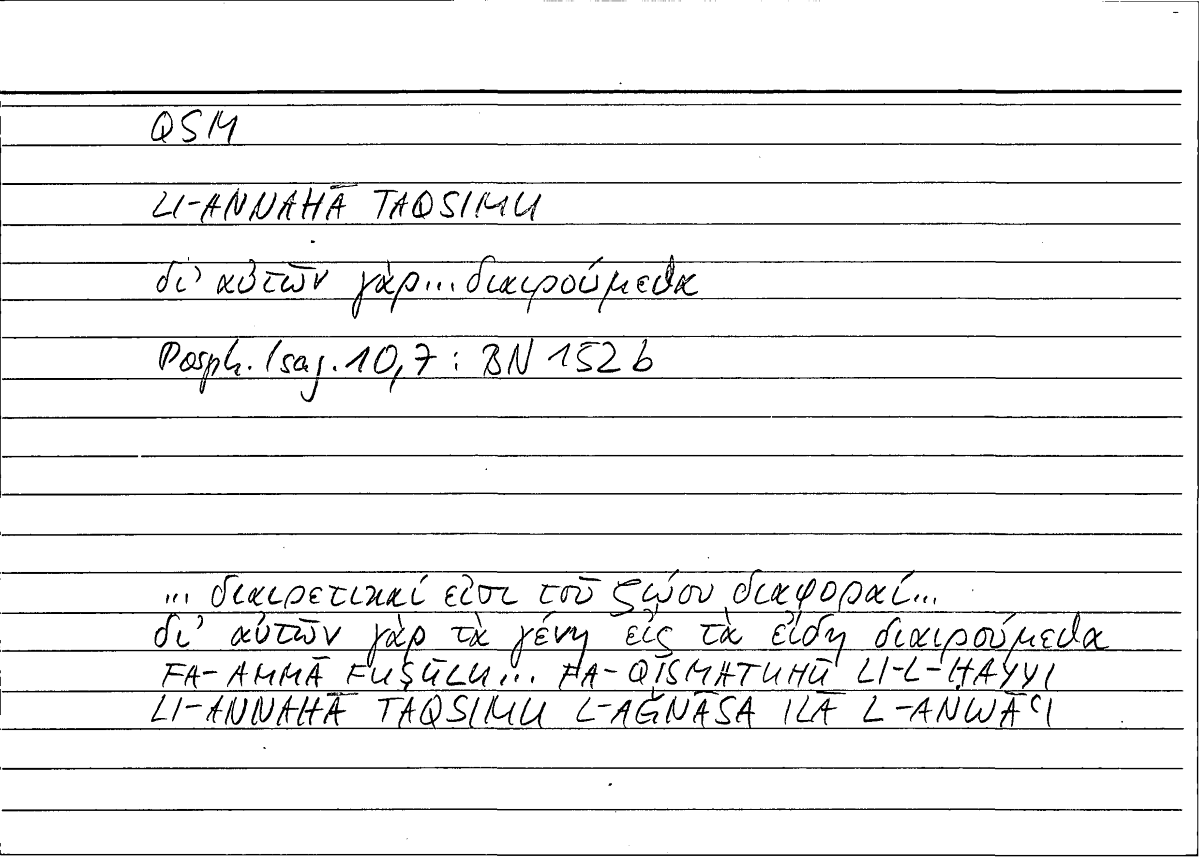 QSM
LI-ANNAHĀ TAQSIMU
δι' αὐτῶν γὰρ... διαιρούμεθα
Porph. Isag. 10,7 : BN 152 b
... διαιρετικαί εἰσι τοῦ ζῴου διαφοραί...
δι' αὐτῶν γὰρ τὰ γένη εἰς τὰ εἴδη διαιρούμεθα
FA-AMMĀ FUṢŪLU... FA-QISMATUHŪ LI-L-ḤAYYI
LI-ANNAHĀ TAQSIMU L-AǦNĀSA ILĀ L-ANWĀʿI